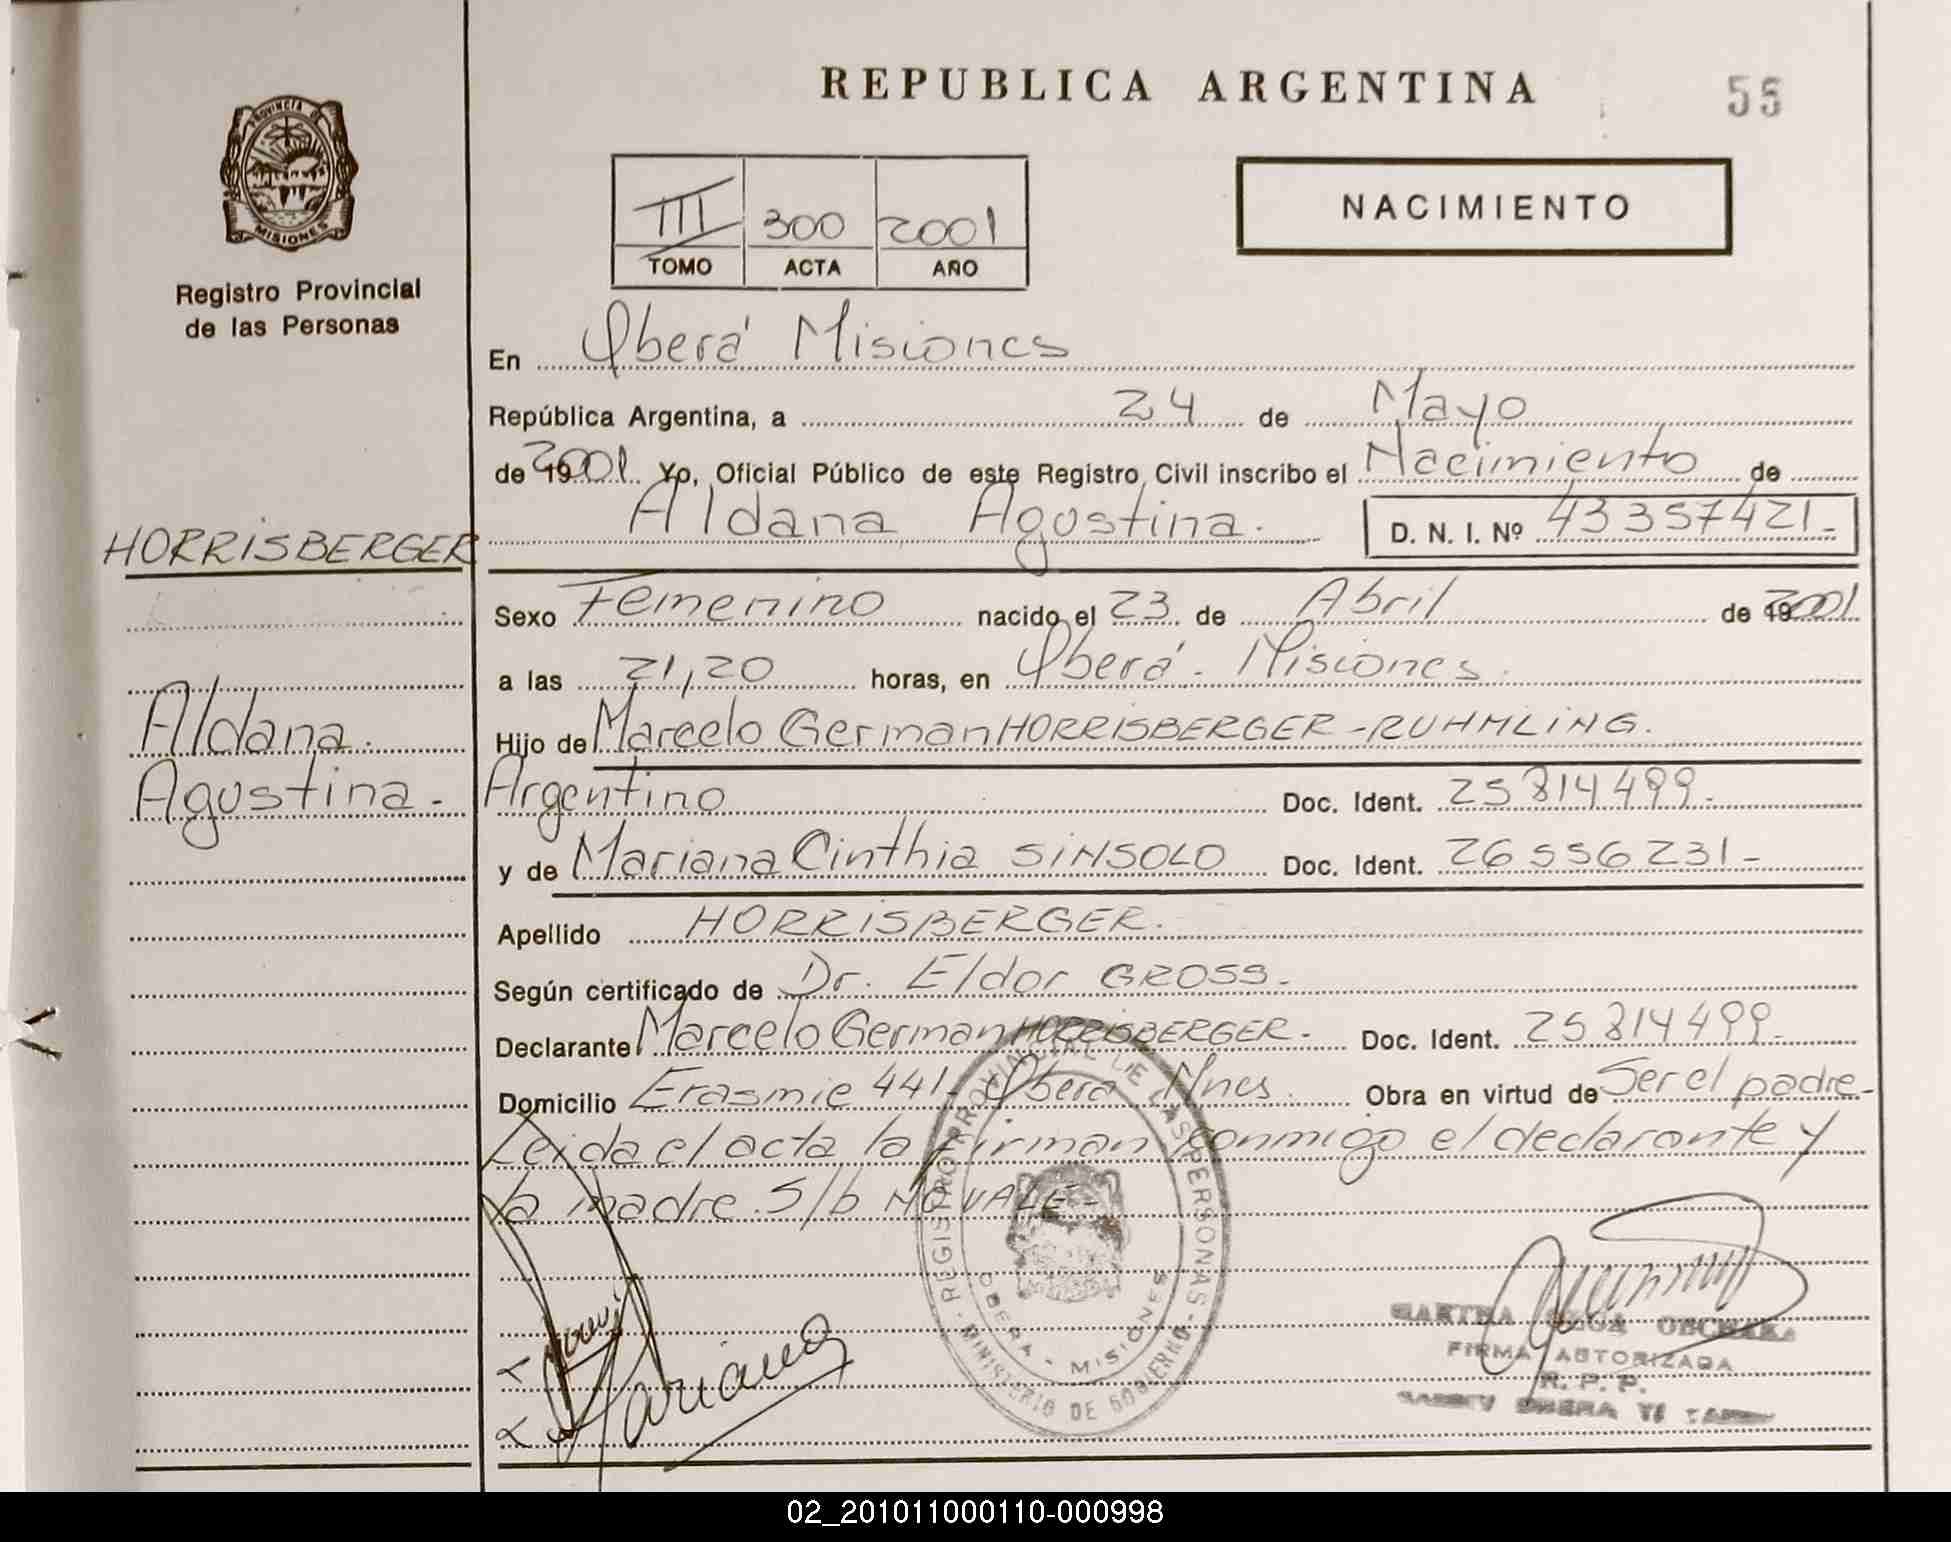 REPUBLICA ARGENTINA
55
PROVINCIA DE
MISIONES
Registro Provincial
de las Personas
III 300 2001
TOMO ACTA AÑO
NACIMIENTO
En Oberá Misiones
República Argentina, a 24 de Mayo
de 2001 Yo, Oficial Público de este Registro Civil inscribo el Nacimiento de
Aldana Agustina. D. N. I. Nº 43357421-
HORRISBERGER
Sexo Femenino nacido el 23 de Abril de 2001
a las 21,20 horas, en Oberá - Misiones.
Aldana.
Hijo de Marcelo German HORRISBERGER-RUHMLING.
Agustina-
Argentino Doc. Ident. 25814499-
y de Mariana Cinthia SINSOLO Doc. Ident. 26556231-
Apellido HORRISBERGER.
Según certificado de Dr. Eldor GROSS-
Declarante Marcelo German HORRISBERGER- Doc. Ident. 25814499-
Domicilio Erasmie 441- Oberá Mnes. Obra en virtud de Ser el padre-
Leida el acta la firman conmigo el declarante y
la madre. S/b NO VALE-
REGISTRO PROVINCIAL DE LAS PERSONAS
OBERA - MISIONES
MINISTERIO DE GOBIERNO
Mariana
FIRMA AUTORIZADA
R. P. P.
02_201011000110-000998